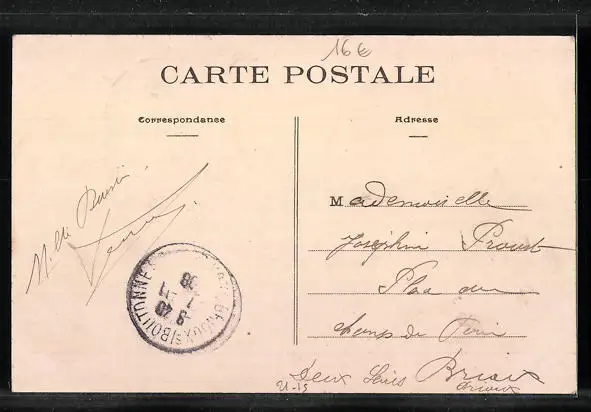 16€
CARTE POSTALE
Correspondance
Adresse
Mademoiselle
Joséphine Proust
Place du
champ de foire
Deux Sèvres Brioux
M.lle
BRIOUX-S-BOUTONNE
8 40
7 -11
08